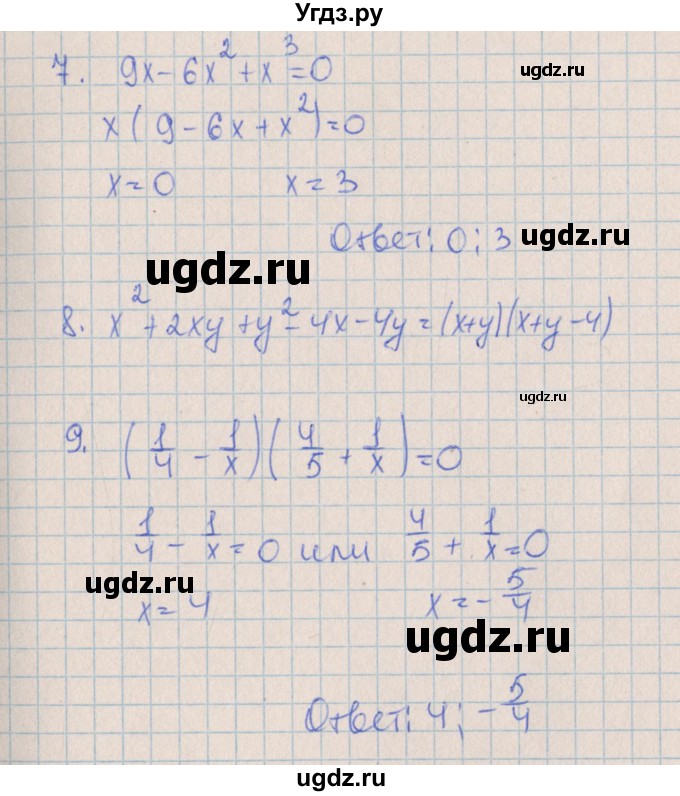 Угдз.ру
7. 9x - 6x² + x³ = 0
ugdz.ru
x(9 - 6x + x²) = 0
x = 0 x = 3
Ответ: 0; 3 ugdz.ru
ugdz.ru
8. x² + 2xy + y² - 4x - 4y = (x+y)(x+y-4)
ugdz.ru
9. (1/4 - 1/x)(4/5 + 1/x) = 0
1/4 - 1/x = 0 или 4/5 + 1/x = 0
ugdz.ru
x = 4 x = -5/4
ugdz.ru
Ответ: 4; -5/4
ugdz.ru